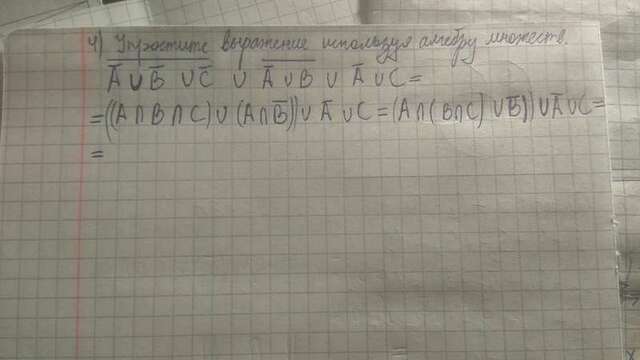 4) Упростите выражение используя алгебру множеств.
\overline{A̅ ∪ B̅ ∪ C̅} ∪ \overline{A̅ ∪ B} ∪ A̅ ∪ C =
= ((A ∩ B ∩ C) ∪ (A ∩ B̅)) ∪ A̅ ∪ C = (A ∩ (B ∩ C) ∪ B̅)) ∪ A̅ ∪ C =
=